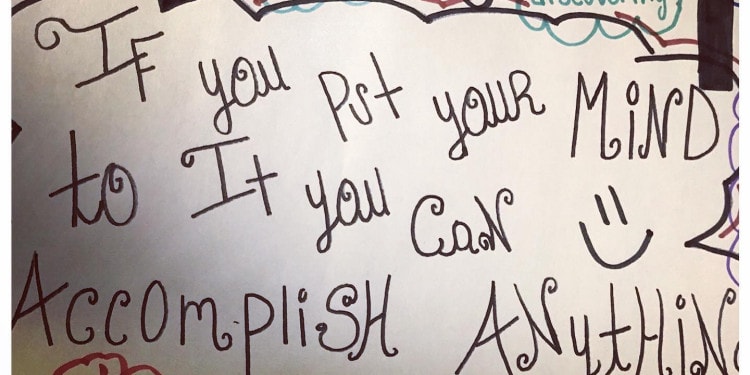 IF you Pst youR MiND
to It you CaN
ACCOmpliSH ANytHiN